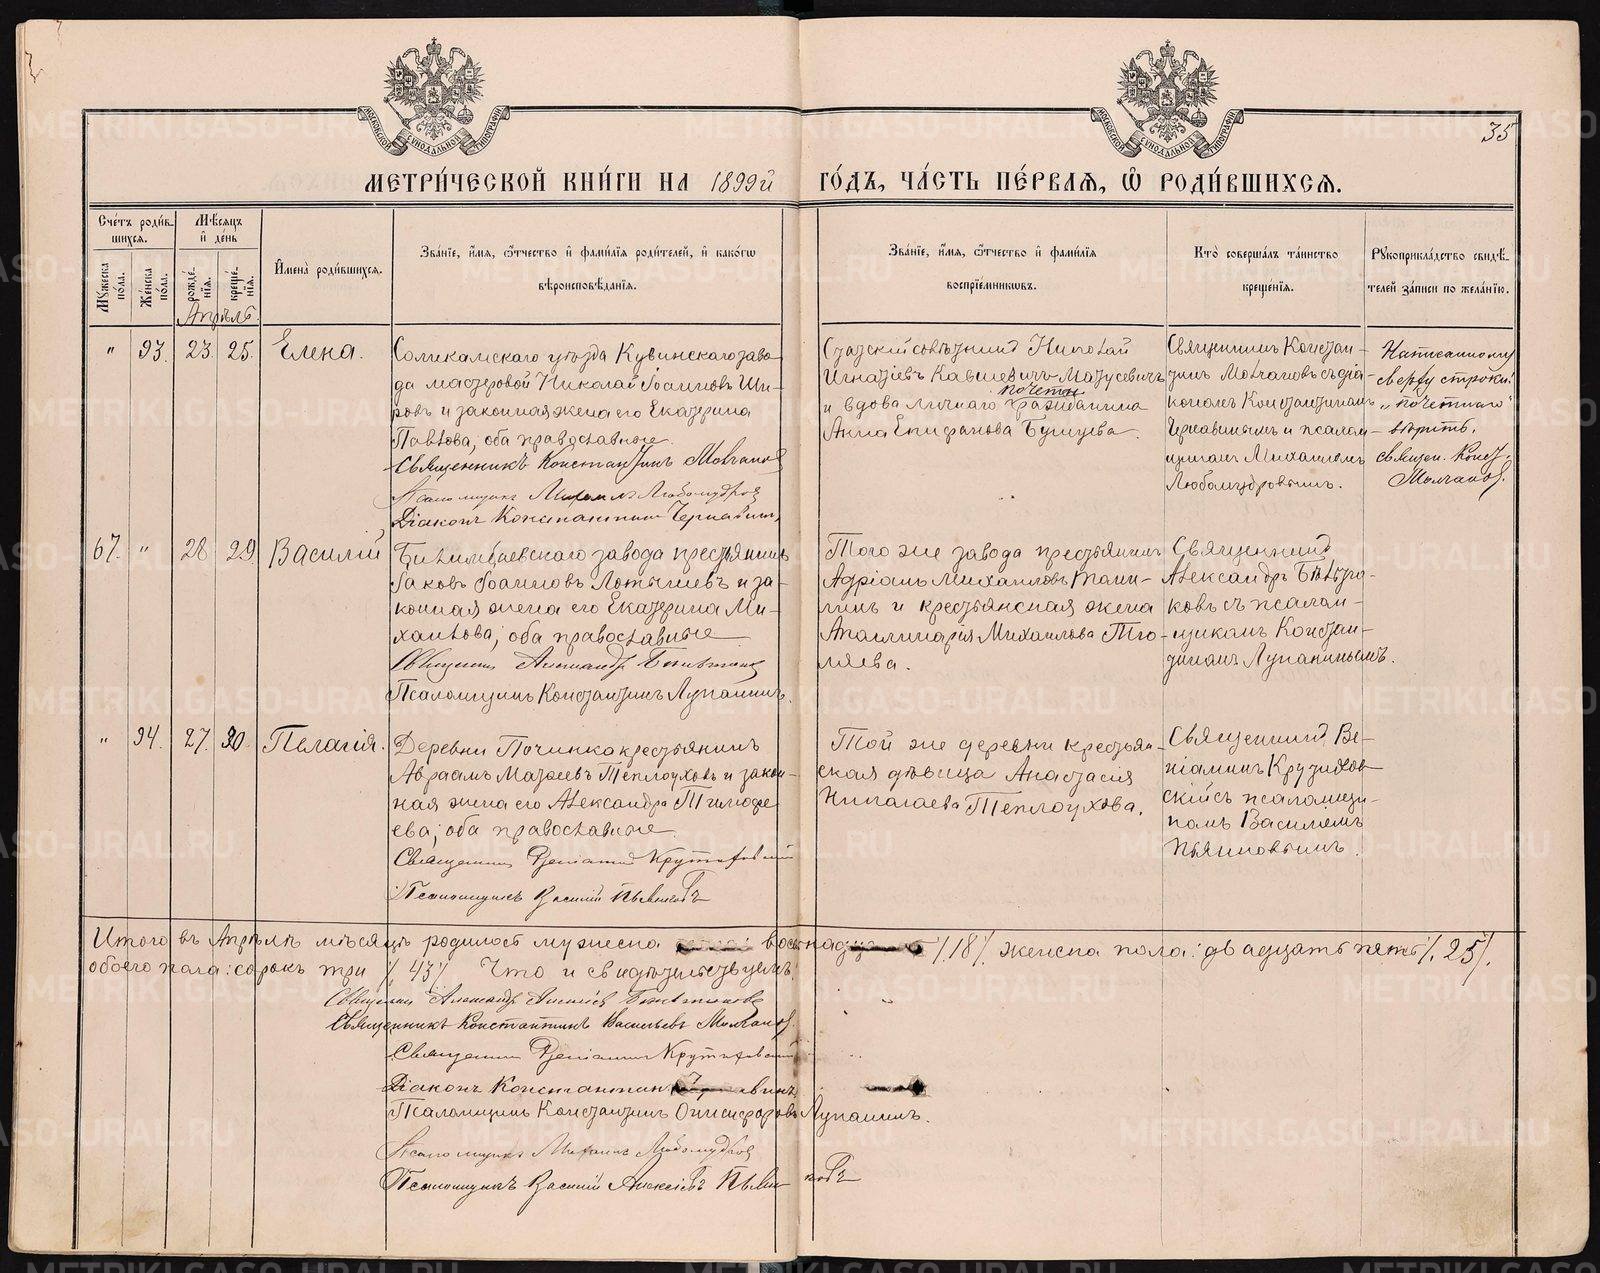 35
МОСКОВСКОЙ СѴНОДАЛЬНОЙ ТИПОГРАФІИ
МОСКОВСКОЙ СѴНОДАЛЬНОЙ ТИПОГРАФІИ
МЕТРИ́ЧЕСКОЙ КНИ́ГИ НА 1899й ГО́ДЪ, ЧА́СТЬ ПЕ́РВАЯ, Ѡ҆ РОДИ́ВШИХСЯ.
Сче́тъ роди́в-
шихся.
Мѣ́сяцъ
и҆ де́нь
Мꙋ́жеска по́ла.
Же́нска по́ла.
рожде́нїя.
креще́нїя.
И҆мена̀ роди́вшихся.
Зва́нїе, и҆́мя, ѻ҆́тчество и҆ фами́лїя роди́телей, и҆ како́гѡ
вѣроисповѣ́данїя.
Зва́нїе, и҆́мя, ѻ҆́тчество и҆ фами́лїя
воспрїе́мниковъ.
Кто̀ соверша́лъ та́инство
креще́нїя.
Рꙋкоприкла́дство свидѣ́-
телей за́писи по жела́нїю.
Апрѣль.
" 93. 23. 25. Елена.
Соликамскаго уѣзда Кувинскаго заво-
да мастеровой Николай Іоанновъ Ши-
ровъ и законная жена его Екатерина
Павлова, оба православные.
Священникъ Константинъ Молчановъ
Псаломщикъ Михаилъ Любомудровъ
Діаконъ Константинъ Чернавинъ
Статскій совѣтникъ Николай
Игнатіевъ Матусевичъ
почетн
и вдова личнаго гражданина
Анна Епифанова
Священникъ Констан-
тинъ Молчановъ съ діа-
кономъ Константиномъ
Чернавинымъ и псалом-
щикомъ Михаиломъ
Любомудровымъ.
Написанному
сверху строки:
"почетнаго"
вѣрить.
священ. Конст.
Молчановъ.
67. " 28 29. Василій
Билимбаевскаго завода крестьянинъ
Іаковъ Іоанновъ Латышевъ и за-
конная жена его Екатерина Ми-
хаилова; оба православные
Священникъ Александръ
Псаломщикъ Константинъ Лупанинъ.
Того же завода крестьянинъ
Адріанъ Михаиловъ
и крестьянская жена
Аполлинарія Михаилова
Священникъ
Александръ
съ псалом-
щикомъ Констан-
тиномъ Лупанинымъ.
" 94. 27. 30. Пелагія.
Деревни Починка крестьянинъ
Авраамъ Матѳеевъ Теплоуховъ и закон-
ная жена его Александра Тимоѳе
ева; оба православные.
Священникъ Веніаминъ
Псаломщикъ Василій Пьянковъ
Той же деревни крестьян-
ская дѣвица Анастасія
Николаева Теплоухова.
Священникъ Ве-
ніаминъ
съ псаломщи-
комъ Василіемъ
Пьянковымъ.
Итого въ Апрѣлѣ мѣсяцѣ родилось мужеска /.18/. женска пола: двадцать пять /.25/.
обоего пола: сорокъ три /.43/. Что и свидѣтельствуемъ:
Священникъ Александръ Алексѣевъ
Священникъ Константинъ Васильевъ Молчановъ.
Священникъ Веніаминъ
Діаконъ Константинъ
Псаломщикъ Константинъ Онисифоровъ Лупанинъ.
Псаломщикъ Михаилъ Любомудровъ
Псаломщикъ Василій Алексѣевъ Пьянковъ
METRIKI.GASO-URAL.RU